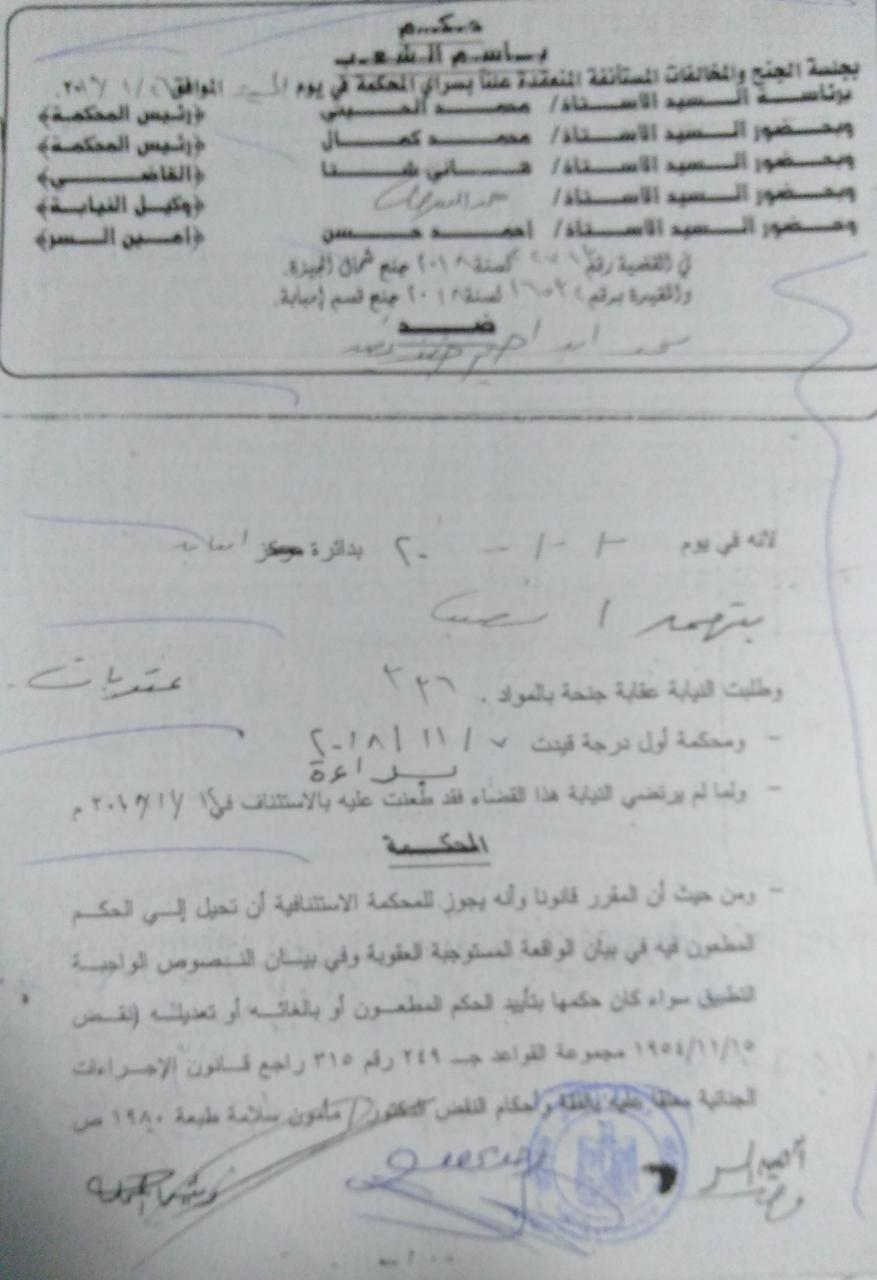 حكم
باسم الشعب
بجلسة الجنح والمخالفات المستأنفة المنعقدة علناً بسراي المحكمة في يوم الموافق
برئاسة السيد الاستاذ/ محمد الحسيني ﴿رئيس المحكمة﴾
وبحضور السيد الاستاذ/ محمد كمال ﴿رئيس المحكمة﴾
وبحضور السيد الاستاذ/ هاني شنا ﴿القاضي﴾
وبحضور السيد الاستاذ/ ﴿وكيل النيابة﴾
وحضور السيد الاستاذ/ احمد حسن ﴿امين السر﴾
في القضية رقم لسنة ٢٠١٨ جنح شمال الجيزة.
والمقيدة برقم لسنة ٢٠١٨ جنح قسم إمبابة.
ضد
لانه في يوم ٢٠ بدائرة مركز
بتهمة / نصب
وطلبت النيابة عقابة جنحة بالمواد . ٣٣٦ عقوبات
- ومحكمة أول درجة قيدت ٧ / ١١ / ٢٠١٨
براءة
- ولما لم يرتضي النيابة هذا القضاء فقد طعنت عليه بالاستئناف في م
المحكمة
- ومن حيث أن المقرر قانونا وأنه يجوز للمحكمة الاستئنافية أن تحيل إلي الحكم
المطعون فيه في بيان الواقعة المستوجبة العقوبة وفي بيان النصوص الواجبة
التطبيق سواء كان حكمها بتأييد الحكم المطعون أو بالغائه أو تعديله (نقض
١٩٥٤/١١/١٥ مجموعة القواعد جـ ٢٤٩ رقم ٣١٥ راجع قانون الإجراءات
الجنائية معلقا عليه بالفقة وأحكام النقض الدكتور / مأمون سلامة طبعة ١٩٨٠ ص
أمين السر
رئيس المحكمة